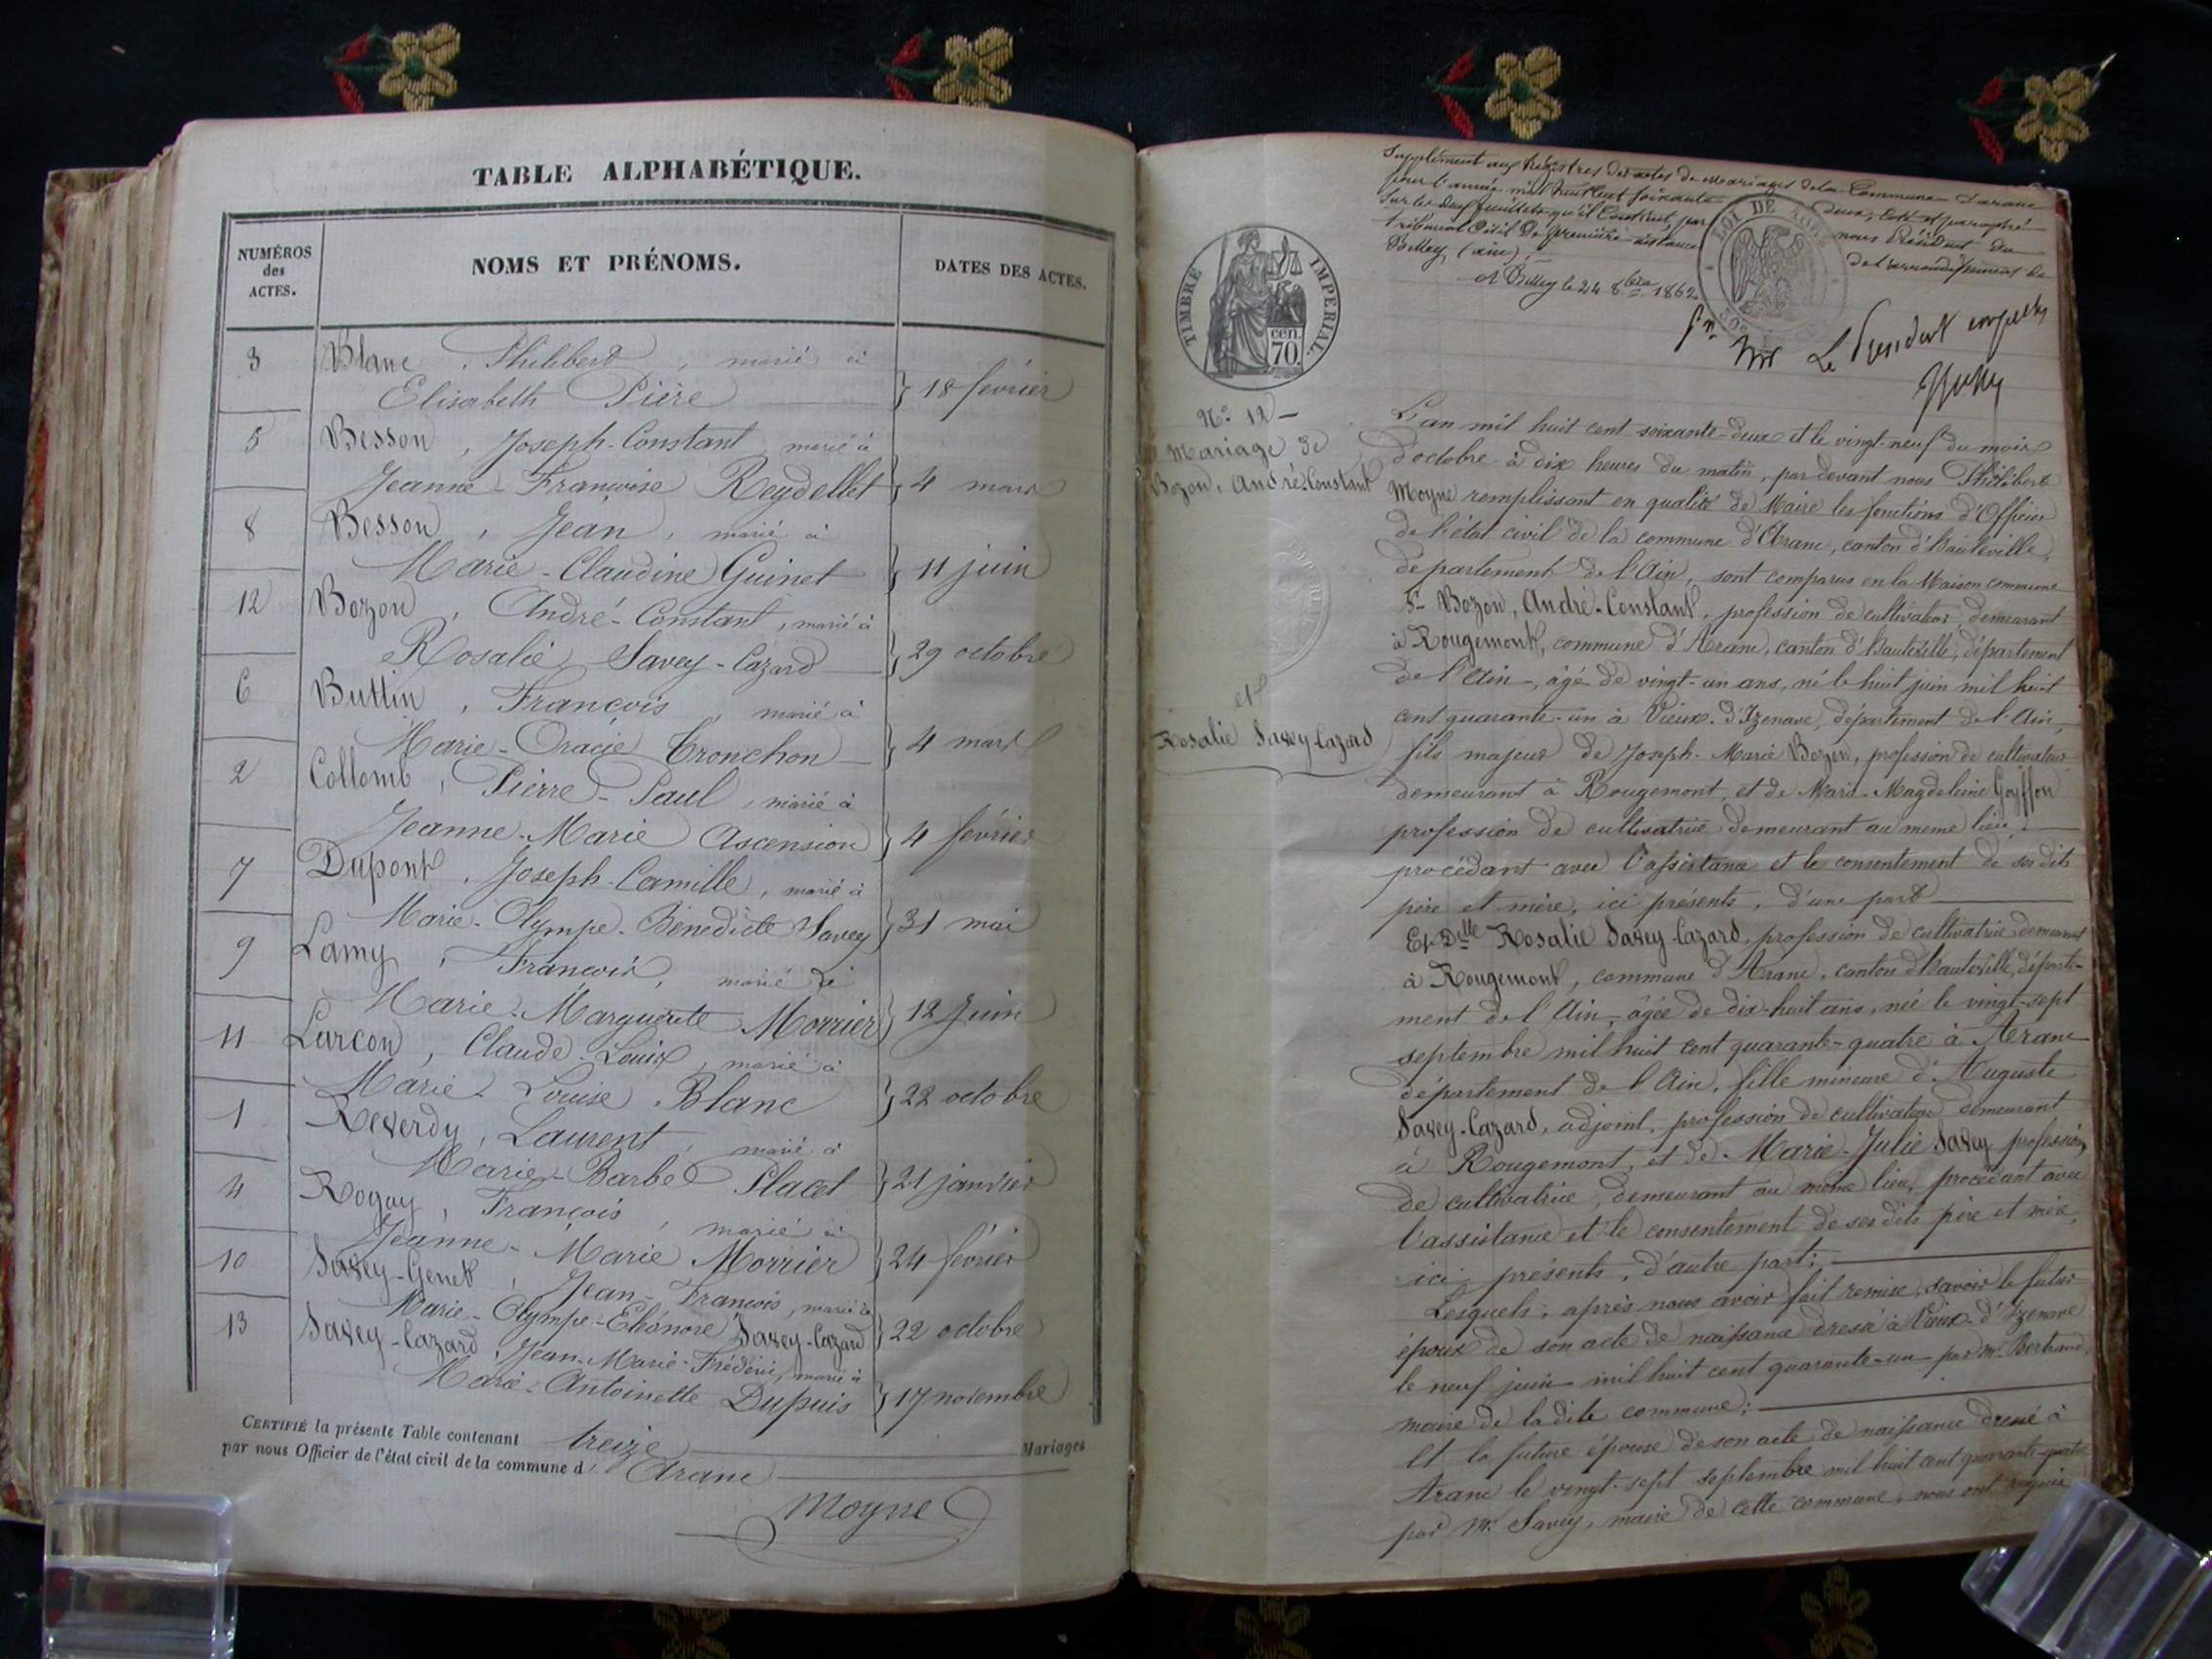 TABLE ALPHABÉTIQUE.
NUMÉROS des ACTES.
NOMS ET PRÉNOMS.
DATES DES ACTES.
3 Blanc, Philibert, marié à
Elisabeth Pière } 18 février
5 Besson, Joseph-Constant, marié à
Jeanne-Françoise Reydellet } 4 mars
8 Besson, Jean, marié à
Marie-Claudine Guinet } 11 juin
12 Bozon, André-Constant, marié à
Rosalie Savey-Cazard } 29 octobre
6 Buttin, François, marié à
Marie-Oracie Tronchon } 4 mars
2 Collomb, Pierre-Paul, marié à
Jeanne-Marie Ascension } 4 février
7 Dupont, Joseph-Camille, marié à
Marie-Olympe-Bénedicte Savey } 31 mai
9 Lamy, François, marié à
Marie-Marguerite Morrier } 12 Juin
11 Larcon, Claude-Louis, marié à
Marie-Louise Blanc } 22 octobre
1 Reverdy, Laurent, marié à
Marie-Barbe Placet } 21 janvier
4 Rogay, François, marié à
Jeanne-Marie Morrier } 24 février
10 Savey-Genet, Jean-François, marié à
Marie-Olympe-Eléonore Savey-Cazard } 22 octobre
13 Savey-Cazard, Jean-Marie-Frédéric, marié à
Marie-Antoinette Dupuis } 17 novembre
CERTIFIÉ la présente Table contenant treize Mariages
par nous Officier de l'état civil de la commune d'Aranc
Moyne
Supplément aux Régistres des actes de Mariages de la Commune d'aranc
pour l'année mil huit cent soixante deux, coté et paraphé
sur les deux feuillets qu'il Contient par nous Président du
tribunal Civil De première instance de l'arrondissement de
Belley, (ain),
A Belley le 24 8bre 1862.
Pr Mr Le Président empêché
LOI DE
TIMBRE IMPERIAL.
70 cen.
No 12 –
Mariage de
Bozon, André-Constant
et
Rosalie Savey-Cazard
L'an mil huit cent soixante-deux et le vingt-neuf du mois
d'octobre à dix heures du matin, par devant nous Philibert
Moyne remplissant en qualité de Maire les fonctions d'Officier
de l'état civil de la commune d'Aranc, canton d'Hauteville,
département de l'Ain, sont comparus en la Maison commune
Sr Bozon, André-Constant, profession de cultivateur, demeurant
à Rougemont, commune d'Aranc, canton d'Hauteville, département
de l'Ain, âgé de vingt-un ans, né le huit juin mil huit
cent quarante-un à Vieux-d'Izenave, département de l'Ain,
fils majeur de Joseph-Marie Bozon, profession de cultivateur
demeurant à Rougemont, et de Marie-Magdeleine Goyffon
profession de cultivatrice demeurant au meme lieu,
procédant avec l'assistance et le consentement de ses dits
père et mère, ici présents, d'une part
Et Delle Rosalie Savey-Cazard, profession de cultivatrice demeurant
à Rougemont, commune d'Aranc, canton d'Hauteville, départe-
ment de l'Ain, âgée de dix-huit ans, née le vingt-sept
septembre mil huit cent quarante-quatre à Aranc
département de l'Ain, fille mineure d'Auguste
Savey-Cazard, adjoint, profession de cultivateur demeurant
à Rougemont, et de Marie-Julie Savey profession
de cultivatrice, demeurant au même lieu, procédant avec
l'assistance et le consentement de ses dits père et mère,
ici présents, d'autre part;
Lesquels, après nous avoir fait remise, savoir le futur
époux de son acte de naissance dressé à Vieux-d'Izenave
le neuf juin mil huit cent quarante-un par Mr. Bertrand,
maire de la dite commune;
Et la future épouse de son acte de naissance dressé à
Aranc le vingt-sept septembre mil huit cent quarante-quatre
par Mr. Savey, maire de cette commune, nous ont requis